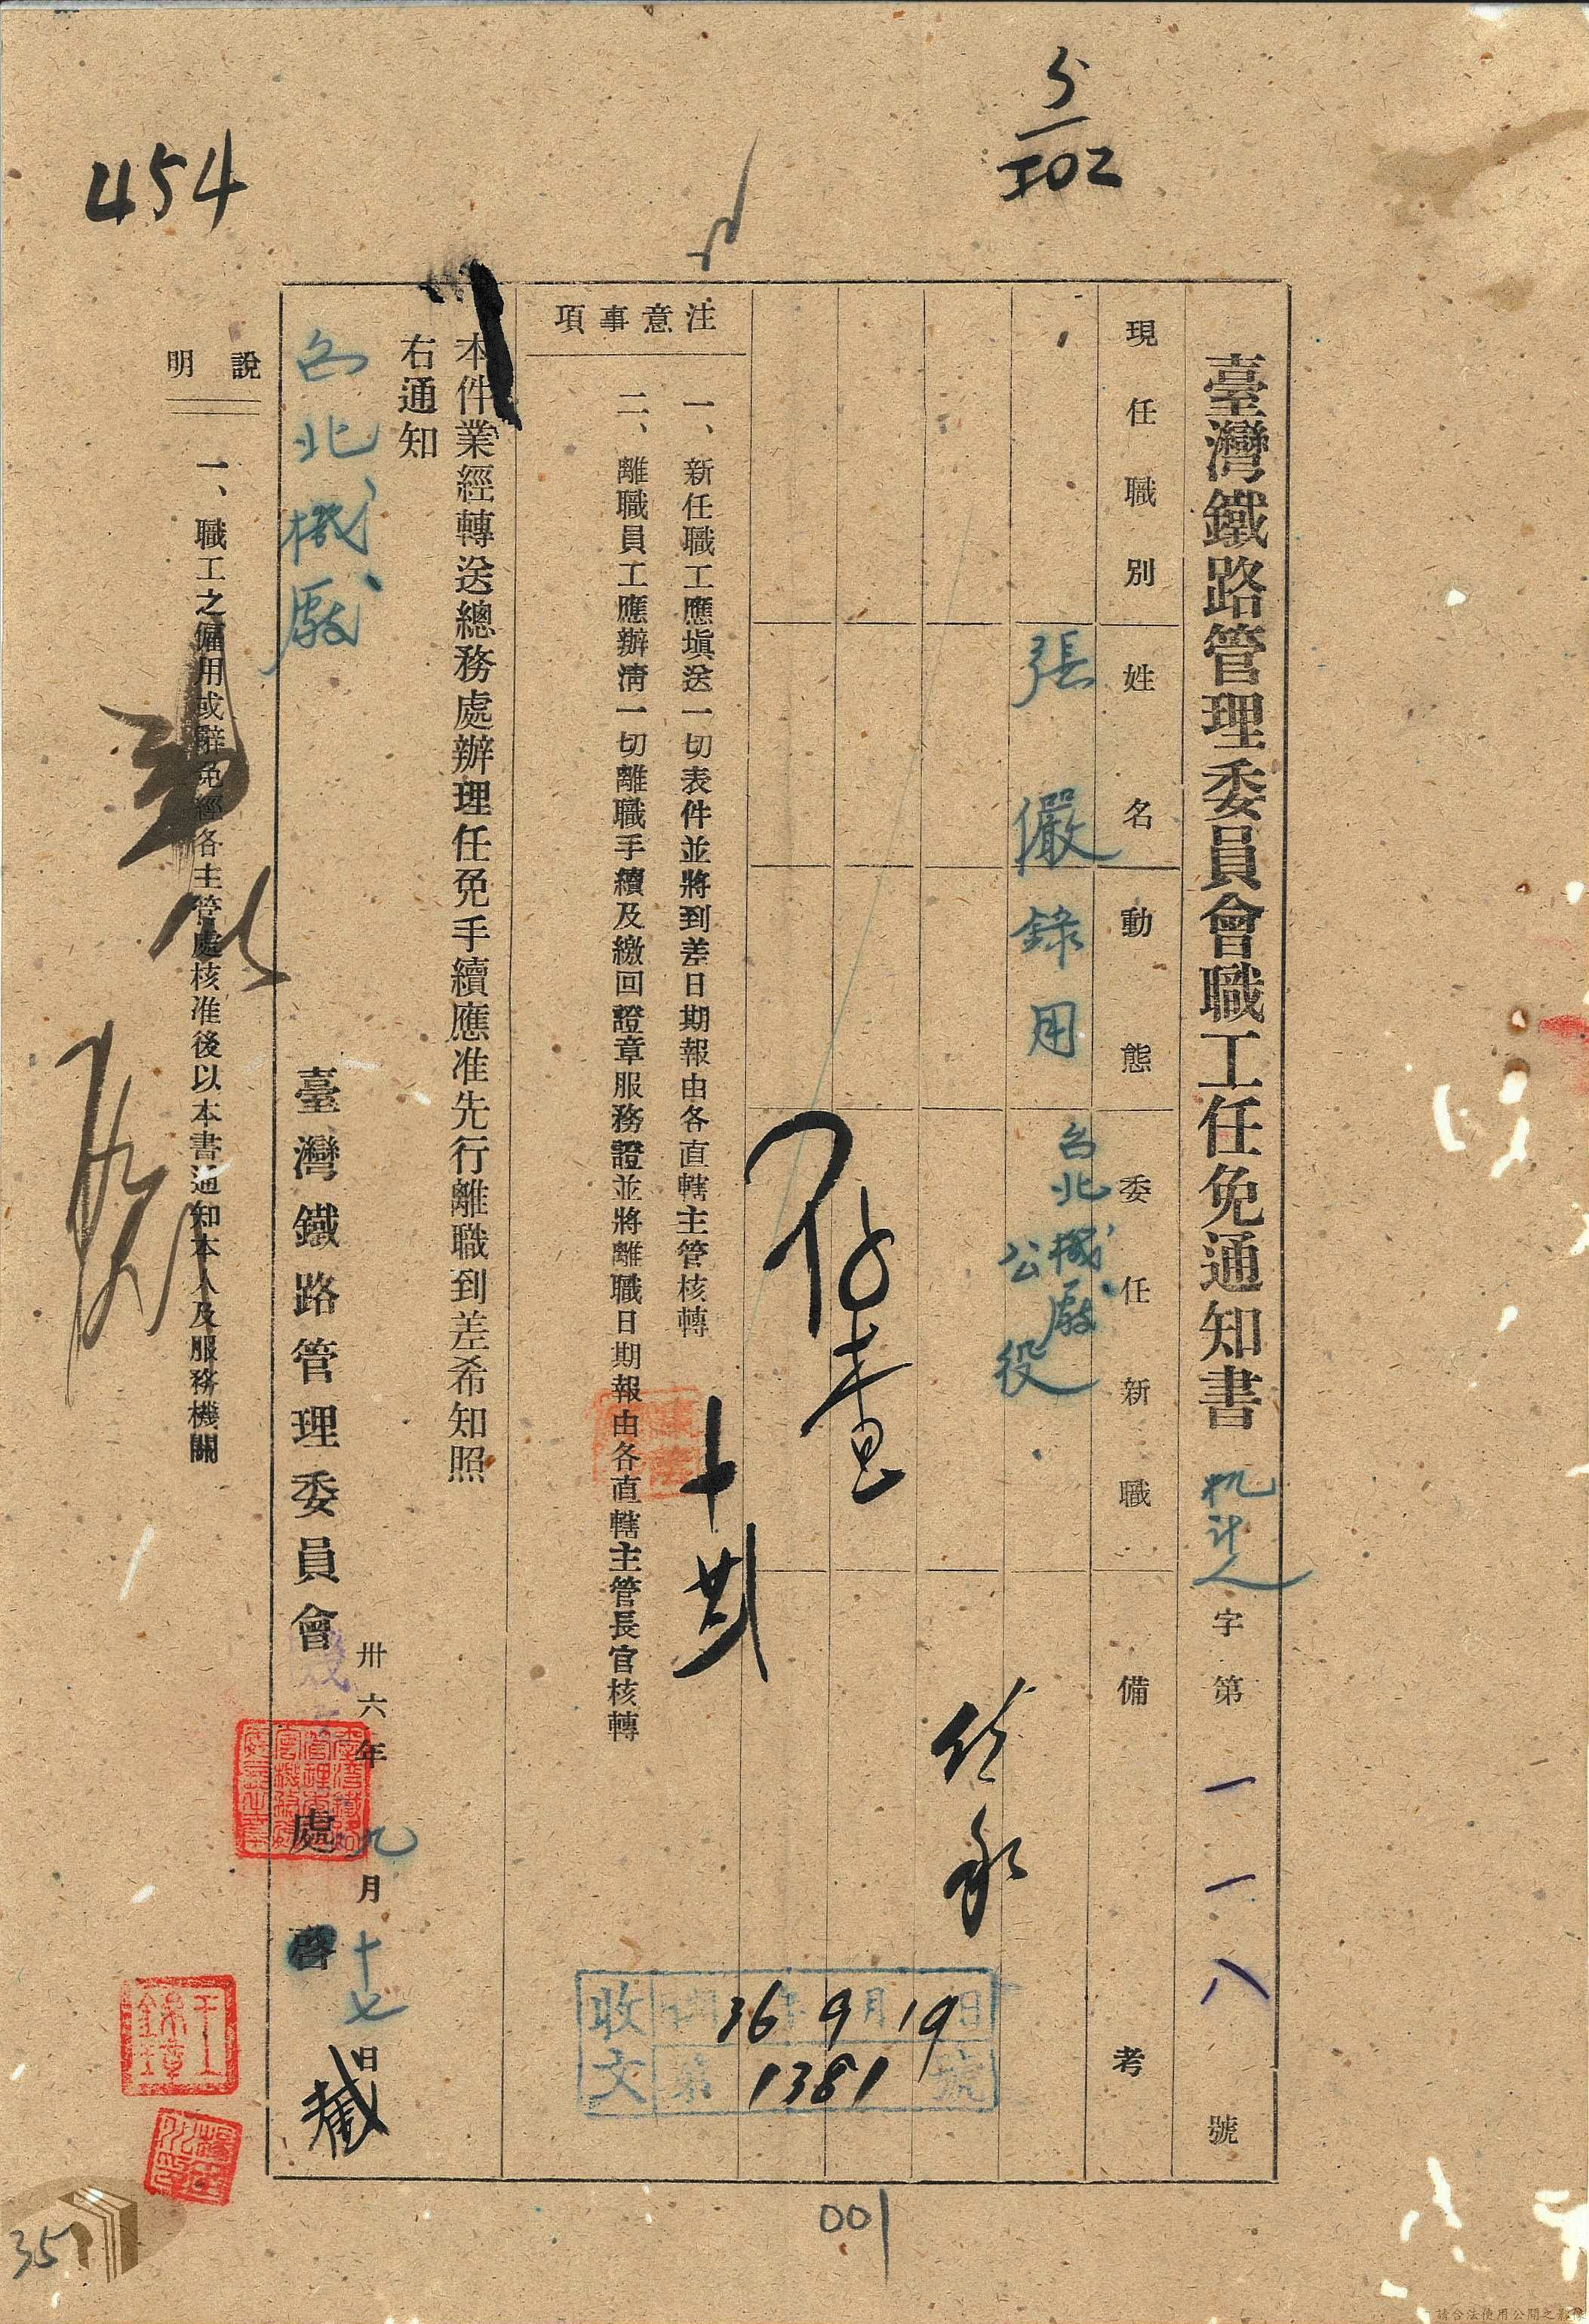 5
102
454
臺灣鐵路管理委員會職工任免通知書 机計人字第一一八號
現任職別 姓名 動態 委任新職 備考
張儼 錄用 台北機廠
公役
注意事項
一、新任職工應塡送一切表件並將到差日期報由各直轄主管核轉
二、離職員工應辦淸一切離職手續及繳回證章服務證並將離職日期報由各直轄主管長官核轉
存查
收文 36年9月19日
第1381號
本件業經轉送總務處辦理任免手續應准先行離職到差希知照
右通知
台北機廠
臺灣鐵路管理委員會 處啓
卅六年九月十七日
說明
一、職工之僱用或辭免經各主管處核准後以本書通知本人及服務機關
001
35
請合法使用公開之影像